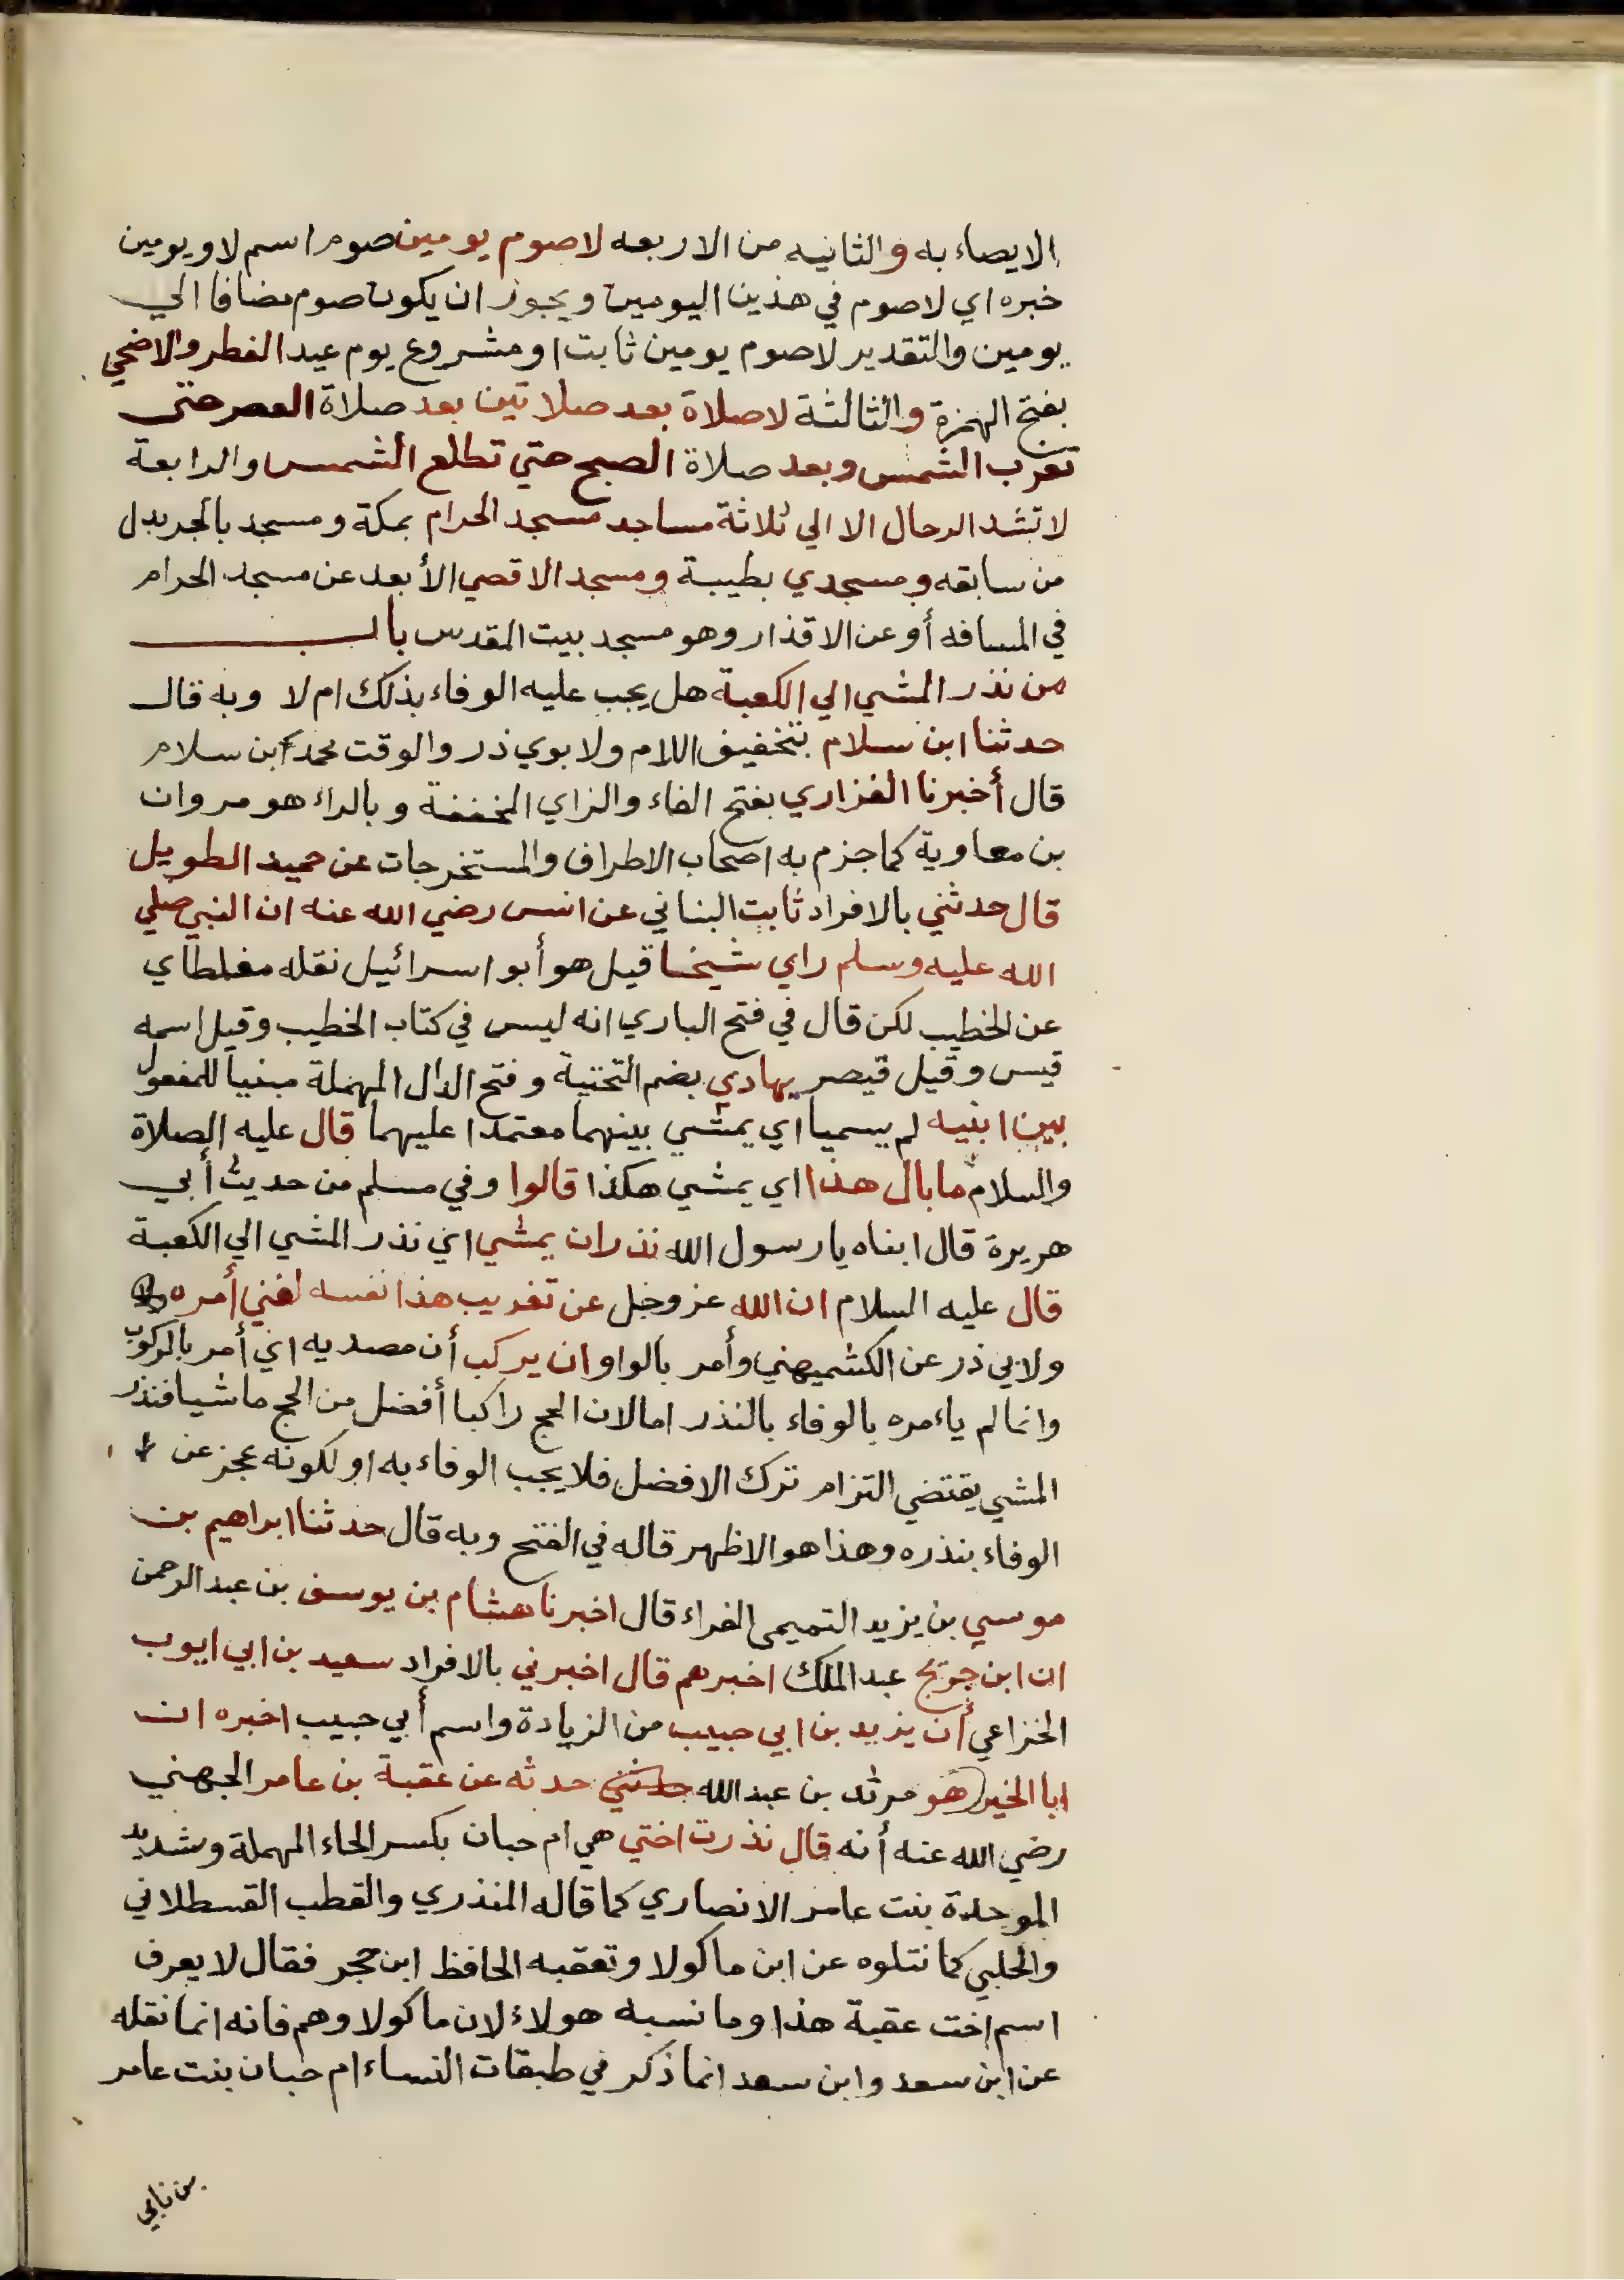 الايصاء به والثانيه من الاربعه لاصوم يومين صوم اسم لا ويومين
خبره اي لاصوم في هذين اليومين ويجوز ان يكون صوم مضافا الي
يومين والتقدير لاصوم يومين ثابت او مشروع يوم عيد الفطر والاضحي
بفتح الهمزة والثالثة لاصلاة بعد صلاتين بعد صلاة العصر حتى
تغرب الشمس وبعد صلاة الصبح حتي تطلع الشمس والرابعة
لا تشد الرحال الا الي ثلاثة مساجد مسجد الحرام بمكة ومسجد بالجر بدل
من سابقه ومسجدي بطيبة ومسجد الاقصي الأبعد عن مسجد الحرام
في المسافه أو عن الاقذار وهو مسجد بيت المقدس باب
من نذر المشي الي الكعبة هل يجب عليه الوفاء بذلك ام لا وبه قال
حدثنا ابن سلام بتخفيف اللام ولابوي ذر والوقت محمد ابن سلام
قال أخبرنا الفزاري بفتح الفاء والزاي المخففة وبالراء هو مروان
بن معاوية كما جزم به اصحاب الاطراف والمستخرجات عن حميد الطويل
قال حدثني بالافراد ثابت البناني عن انس رضي الله عنه ان النبي صلي
الله عليه وسلم راي شيخا قيل هو أبو اسرائيل نقله مغلطاي
عن الخطيب لكن قال في فتح الباري انه ليس في كتاب الخطيب وقيل اسمه
قيس وقيل قيصر يهادي بضم التحتية وفتح الدال المهملة مبنيا للمفعول
بين ابنيه لم يسميا اي يمشي بينهما معتمدا عليهما قال عليه الصلاة
والسلام ما بال هذا اي يمشي هكذا قالوا وفي مسلم من حديث أبي
هريرة قال ابناه يا رسول الله نذر ان يمشي اي نذر المشي الي الكعبة
قال عليه السلام ان الله عز وجل عن تعذيب هذا نفسه لغني أمره
ولابي ذر عن الكشميهني وأمر بالواو ان يركب أن مصدريه اي أمر بالركوب
وانما لم ياءمره بالوفاء بالنذر اما لان الحج راكبا أفضل من الحج ماشيا فنذر
المشي يقتضي التزام ترك الافضل فلا يجب الوفاء به او لكونه عجز عن
الوفاء بنذره وهذا هو الاظهر قاله في الفتح وبه قال حدثنا ابراهيم بن
موسي بن يزيد التميمى الفراء قال اخبرنا هشام بن يوسف بن عبد الرحمن
ان ابن جريج عبد الملك اخبرهم قال اخبرني بالافراد سعيد بن ابي ايوب
الخزاعي أن يزيد بن ابي حبيب من الزيادة واسم أبي حبيب اخبره ان
ابا الخير هو مرثد بن عبد الله حدثني حدثه عن عقبة بن عامر الجهني
رضي الله عنه أنه قال نذرت اختي هي ام حبان بكسر الحاء المهملة وشديد
الموحدة بنت عامر الانصاري كما قاله المنذري والقطب القسطلاني
والحلبي كما نتلوه عن ابن ماكولا وتعقبه الحافظ ابن حجر فقال لا يعرف
اسم اخت عقبة هذا وما نسبه هولاء لان ماكولا وهم فانه انما نقله
عن ابن سعد وابن سعد انما ذكر في طبقات النساء ام حبان بنت عامر
بن نابي